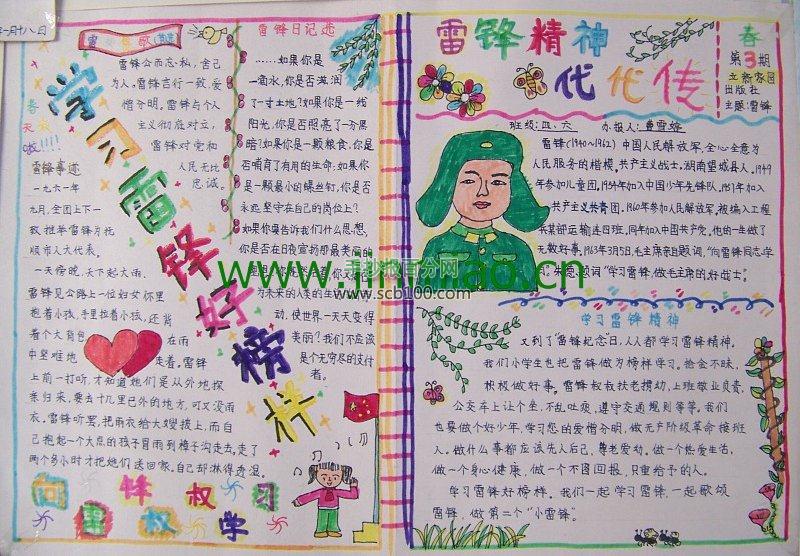 年一月十八日
春天来啦!!!!
学习雷锋好榜样
雷锋公而忘私,舍己
为人。雷锋言行一致,爱
憎分明。雷锋与个人
主义彻底对立,
雷锋对党和
人民无比
忠诚。
雷锋事迹
一九六一年
九月,全团上下一
致推举雷锋为抚
顺市人大代表。
一天傍晚,天下起大雨。
雷锋见公路上一位妇女怀里
抱着小孩,手里拉着小孩,还背
着个大背包
在雨
中艰难地
走着。雷锋
上前一打听,才知道她们是从外地探
亲归来,要去十几里已外的地方,可又没雨
衣。雷锋听罢,把雨衣给大嫂披上,而自
己抱起一个大点的孩子冒雨到樟子沟去走。走了
两个多小时才把她们送回家。自己却淋得透湿。
向雷锋叔叔学习
雷锋日记选
……如果你是
一滴水,你是否滋润
了一寸土地?如果你是一线
阳光,你是否照亮了一分黑
暗?如果你是一颗粮食,你是
否哺育了有用的生命;如果你
是一颗最小的螺丝钉,你是否
永远坚守在自己的岗位上?
如果你要告诉我们什么思想,
你是否在日夜宣扬那最美丽的
为未来的人类的生
动,使世界一天天变得
美丽?我们不应该
是个无穷尽的支付
者。
雷锋精神
代代传
春
第3期
立新家园
出版社
主题:雷锋
班级:四、六
办报人:
雷锋(1940~1962)中国人民解放军,全心全意为
人民服务的楷模。共产主义战士,湖南望城县人。1949
年参加儿童团。1954年加入中国少年先锋队,1957年加入
共产主义共青团。1960年参加人民解放军,被编入工程
兵某部运输连四班,同年加入中国共产党。他的一生做了
无数好事。1963年3月5日,毛主席亲自题词,“向雷锋同志学
习”。朱德题词“学习雷锋,做毛主席的好战士”。
www.jinmiao.cn
手抄报百分网
www.scb100.com
学习雷锋精神
又到了“雷锋纪念”日,人人都学习雷锋精神。
我们小学生也把雷锋做为榜样学习。拾金不昧,
积极做好事。雷锋叔叔扶老携幼,上班敬业负责,
公交车上让个坐,不乱吐痰,遵守交通规则等等。我们
也要做个好少年。学习您的爱憎分明,做无产阶级革命接班
人。做什么事都应该先人后己,尊老爱幼。做一个热爱生活,
做一个身心健康,做一个不图回报,只重给予的人。
学习雷锋好榜样。我们一起学习雷锋,一起歌颂
雷锋,做第二个“小雷锋”。